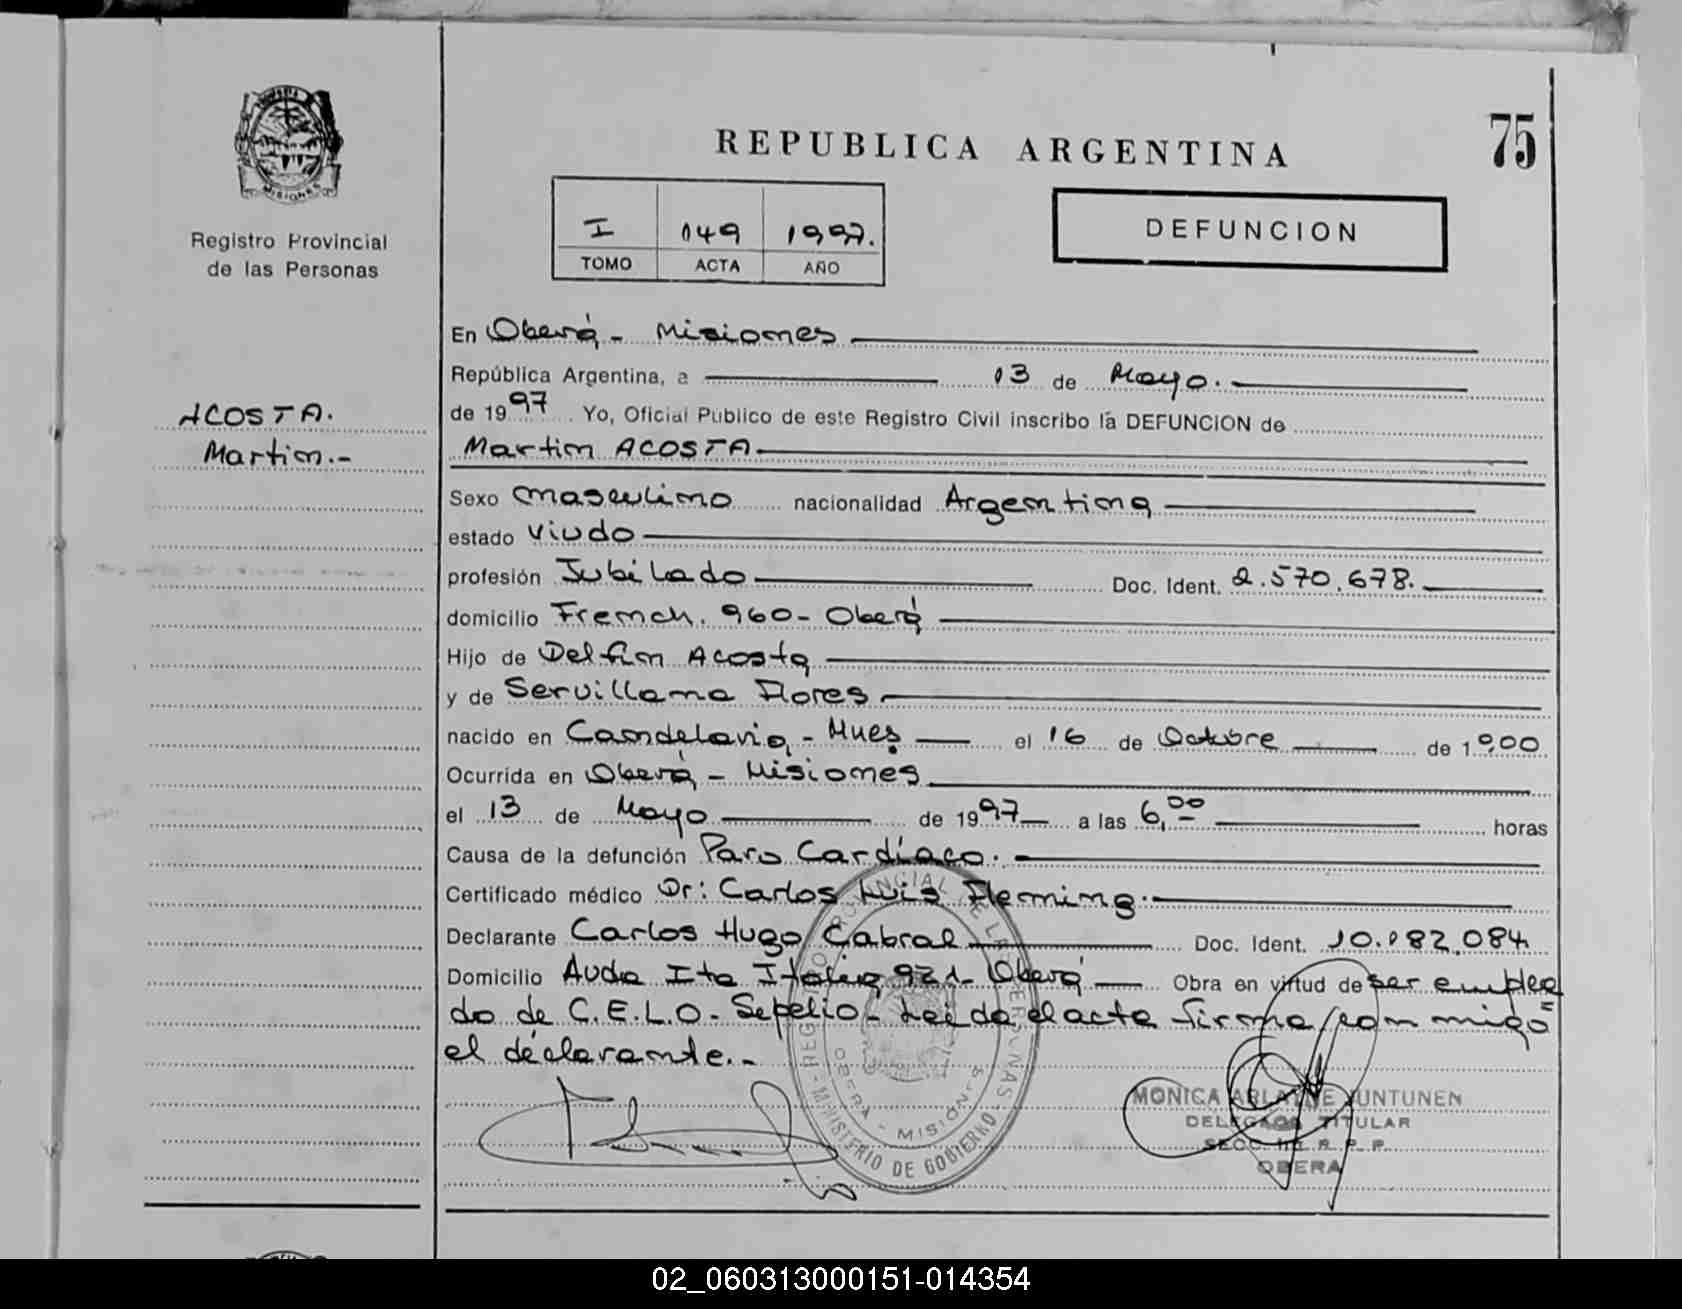 MISIONES
Registro Provincial
de las Personas
ACOSTA.
Martin.-
REPUBLICA ARGENTINA
75
I 049 1997.
TOMO ACTA AÑO
DEFUNCION
En Oberá - Misiones
República Argentina, a 13 de Mayo.
de 1997 Yo, Oficial Público de este Registro Civil inscribo la DEFUNCION de
Martin ACOSTA
Sexo masculino nacionalidad Argentina
estado Viudo
profesión Jubilado Doc. Ident. 2.570.678.
domicilio French. 960- Oberá
Hijo de Delfin Acosta
y de Servillana Flores
nacido en Candelaria - Mnes el 16 de Octubre de 1.900
Ocurrida en Oberá - Misiones
el 13 de Mayo de 1997 a las 6,00 horas
Causa de la defunción Paro Cardíaco.
Certificado médico Dr: Carlos Luis Fleming.
Declarante Carlos Hugo Cabral Doc. Ident. 10.182.084
Domicilio Avda Ita Italia 921- Oberá Obra en virtud de ser emplea
do de C.E.L.O. Sepelio - Leida el acta firma conmigo
el declarante.-
REGISTRO PROVINCIAL DE LAS PERSONAS - MINISTERIO DE GOBIERNO
OBERA - MISIONES
MONICA DE JUNTUNEN
DELEGADA TITULAR
SECC. R. P. P.
OBERA
02_060313000151-014354